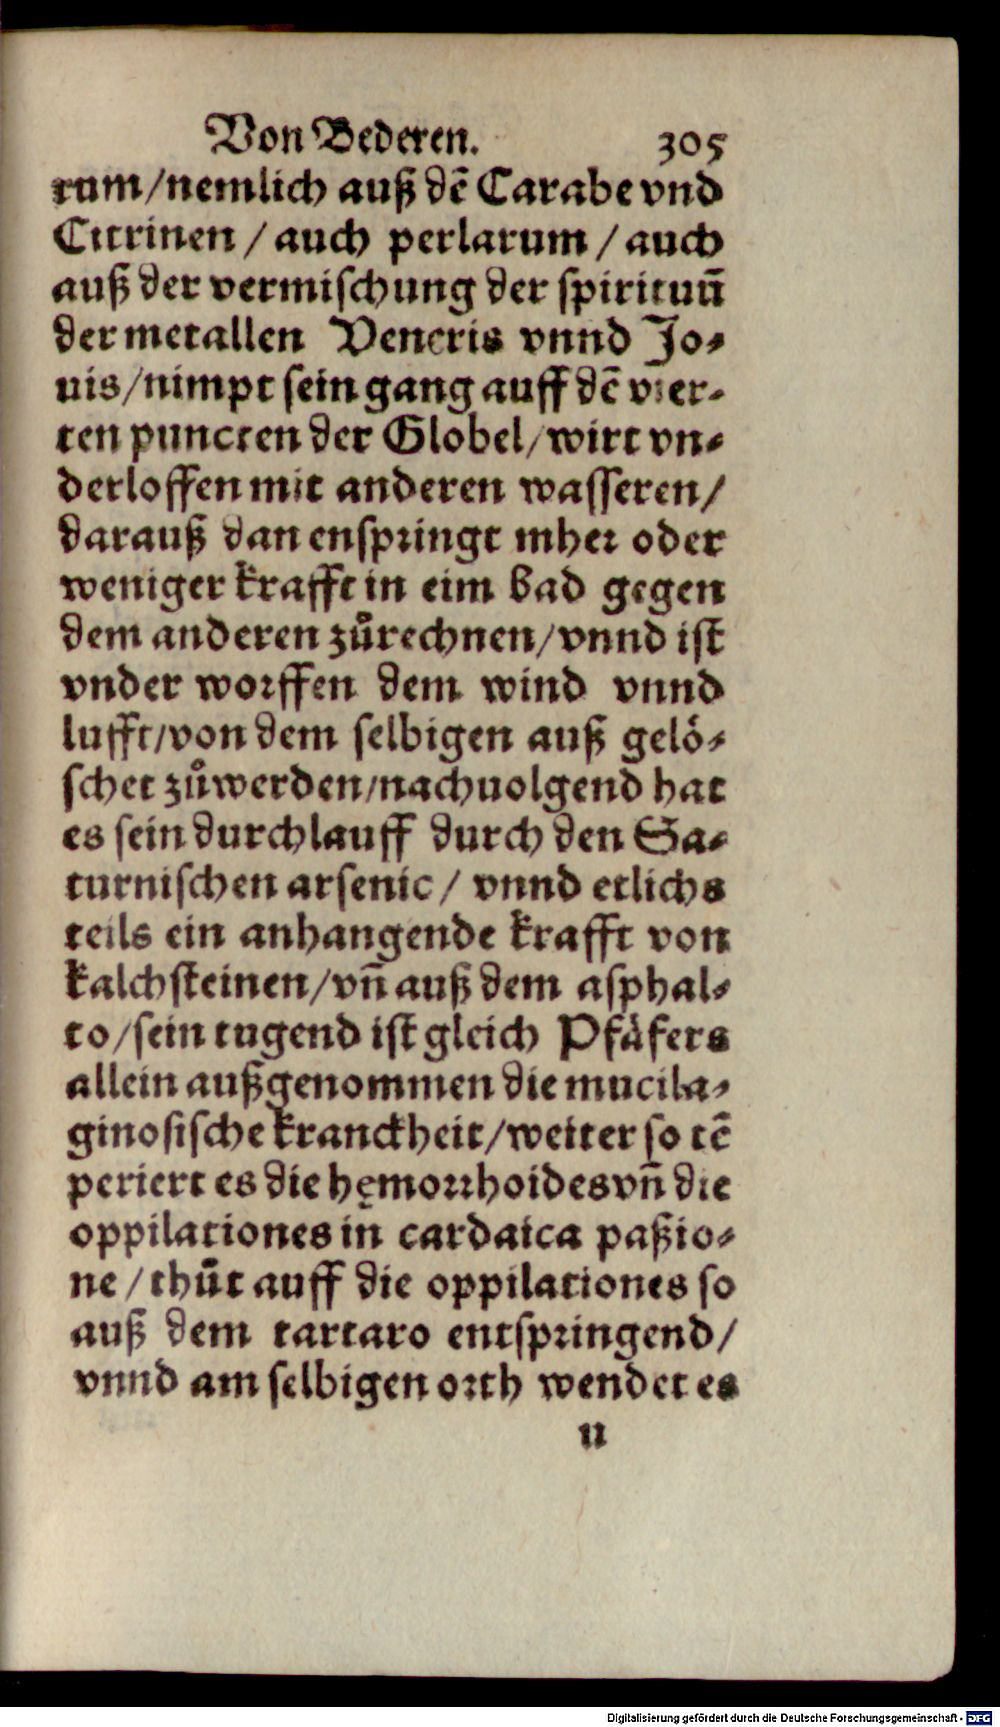 Von Bederen. 305
rum/nemlich auß dē Carabe vnd
Citrinen / auch perlarum / auch
auß der vermischung der spirituū
der metallen Veneris vnnd Jo⸗
uis/nimpt sein gang auff dē vier⸗
ten puncten der Globel/wirt vn⸗
derloffen mit anderen wasseren/
darauß dan enspringt mher oder
weniger krafft in eim bad gegen
dem anderen zůrechnen/vnnd ist
vnder worffen dem wind vnnd
lufft/von dem selbigen auß gelö⸗
schet zůwerden/nachuolgend hat
es sein durchlauff durch den Sa⸗
turnischen arsenic / vnnd etlichs
teils ein anhangende krafft von
kalchsteinen/vn̄ auß dem asphal⸗
to/sein tugend ist gleich Pfäfers
allein außgenommen die mucila⸗
ginosische kranckheit/weiter so tē
periert es die hęmorrhoides vn̄ die
oppilationes in cardaica paßio⸗
ne / thůt auff die oppilationes so
auß dem tartaro entspringend/
vnnd am selbigen orth wendet es
u
Digitalisierung gefördert durch die Deutsche Forschungsgemeinschaft - DFG